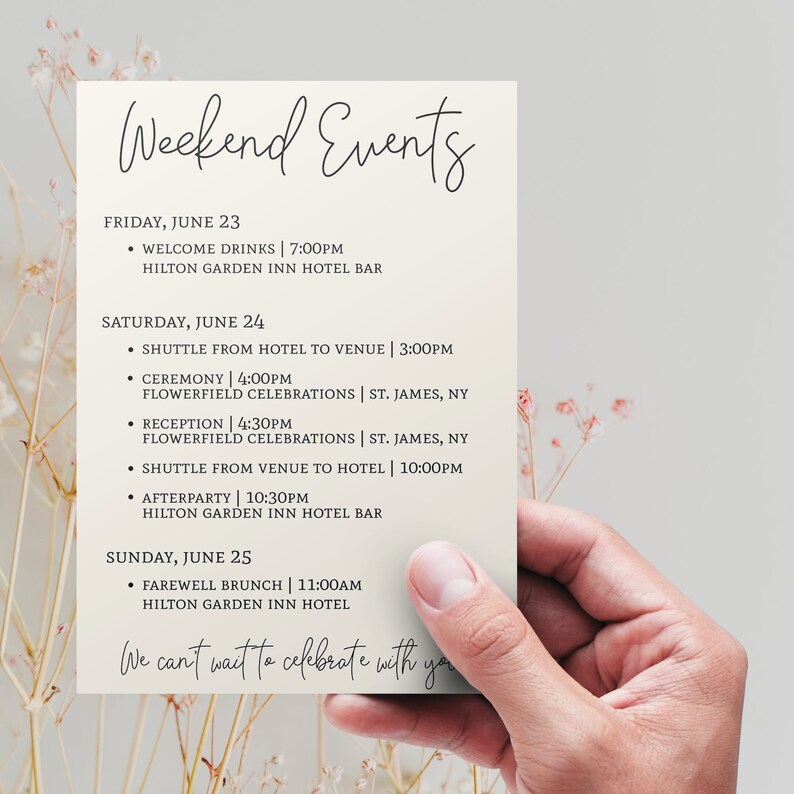 Weekend Events
FRIDAY, JUNE 23
• WELCOME DRINKS | 7:00PM
HILTON GARDEN INN HOTEL BAR
SATURDAY, JUNE 24
• SHUTTLE FROM HOTEL TO VENUE | 3:00PM
• CEREMONY | 4:00PM
FLOWERFIELD CELEBRATIONS | ST. JAMES, NY
• RECEPTION | 4:30PM
FLOWERFIELD CELEBRATIONS | ST. JAMES, NY
• SHUTTLE FROM VENUE TO HOTEL | 10:00PM
• AFTERPARTY | 10:30PM
HILTON GARDEN INN HOTEL BAR
SUNDAY, JUNE 25
• FAREWELL BRUNCH | 11:00AM
HILTON GARDEN INN HOTEL
We can't wait to celebrate with you